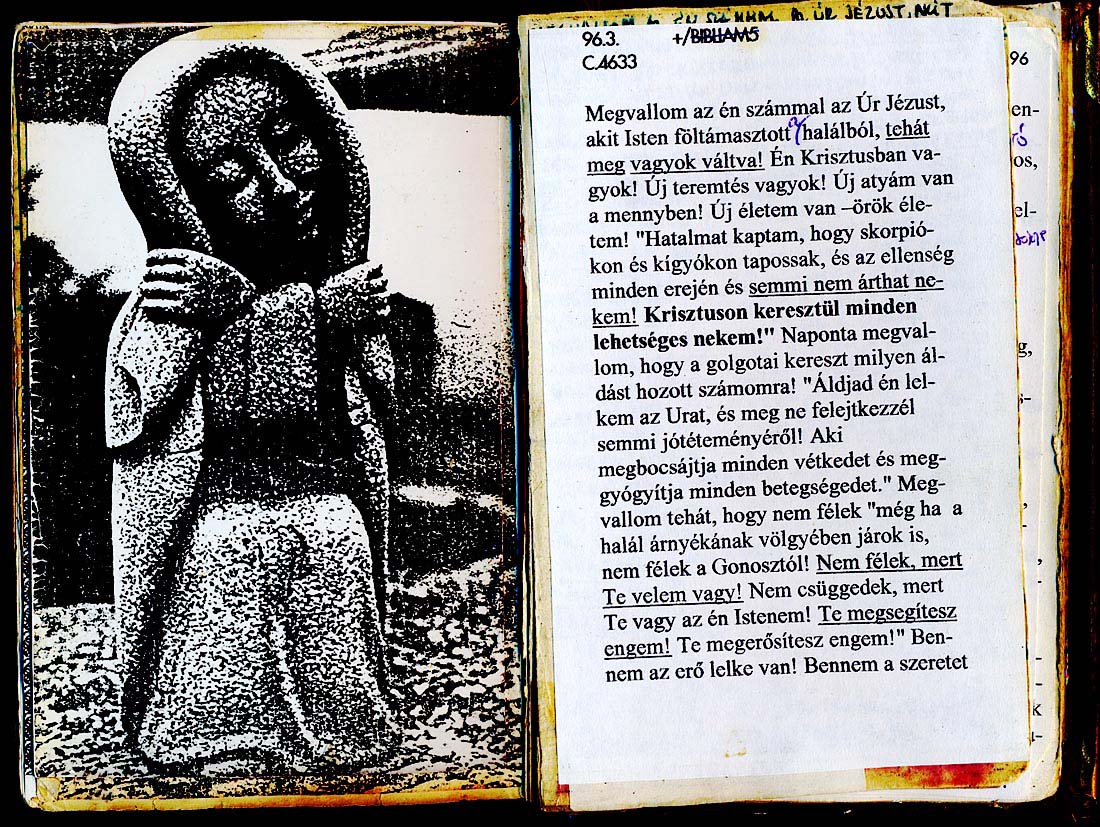 JÉZUST, AKIT
96.3. +/BIBLIAM5
C.4633
96
Megvallom az én számmal az Úr Jézust,
akit Isten föltámasztott halálból, tehát
meg vagyok váltva! Én Krisztusban va-
gyok! Új teremtés vagyok! Új atyám van
a mennyben! Új életem van –örök éle-
tem! "Hatalmat kaptam, hogy skorpió-
kon és kígyókon tapossak, és az ellenség
minden erején és semmi nem árthat ne-
kem! Krisztuson keresztül minden
lehetséges nekem!" Naponta megval-
lom, hogy a golgotai kereszt milyen ál-
dást hozott számomra! "Áldjad én lel-
kem az Urat, és meg ne felejtkezzél
semmi jótéteményéről! Aki
megbocsájtja minden vétkedet és meg-
gyógyítja minden betegségedet." Meg-
vallom tehát, hogy nem félek "még ha a
halál árnyékának völgyében járok is,
nem félek a Gonosztól! Nem félek, mert
Te velem vagy! Nem csüggedek, mert
Te vagy az én Istenem! Te megsegítesz
engem! Te megerősítesz engem!" Ben-
nem az erő lelke van! Bennem a szeretet